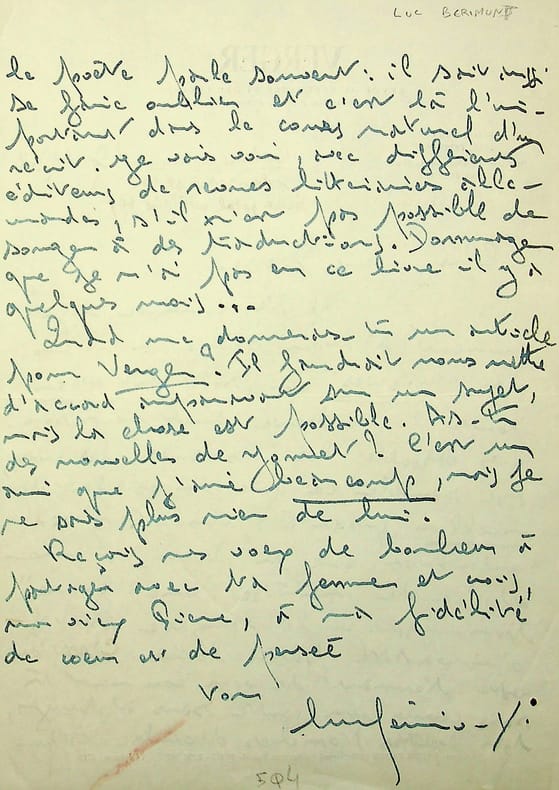 LUC BERIMONT
le poète parle souvent : il sait aussi
se faire oublier et c'est là l'im-
portant dans le cours naturel d'un
récit. Je vais voir, avec différents
éditeurs de revues littéraires alle-
mandes, s'il n'est pas possible de
songer à des traductions. Dommage
que je n'ai pas eu ce livre il y a
quelques mois...
Quand me donneras-tu un article
pour Verger ? Il faudrait nous mettre
d'accord auparavant sur un sujet,
mais la chose est possible. As-tu
des nouvelles de ? C'est un
ami que j'aime beaucoup, mais je
ne sais plus rien de lui.
Reçois mes voeux de bonheur à
partager avec ta femme et crois,
mon vieux Pierre, à ma fidélité
de coeur et de pensée
504